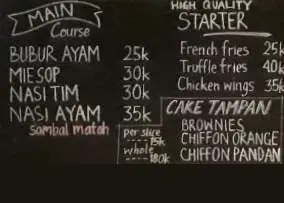 MAIN
Course
BUBUR AYAM 25k
MIE SOP 30k
NASI TIM 30k
NASI AYAM 35k
sambal matah
HIGH QUALITY
STARTER
French fries 25k
Truffle fries 40k
Chicken wings 35k
CAKE TAMPAN
per slice
---- 15k
whole
---- 180k
BROWNIES
CHIFFON ORANGE
CHIFFON PANDAN